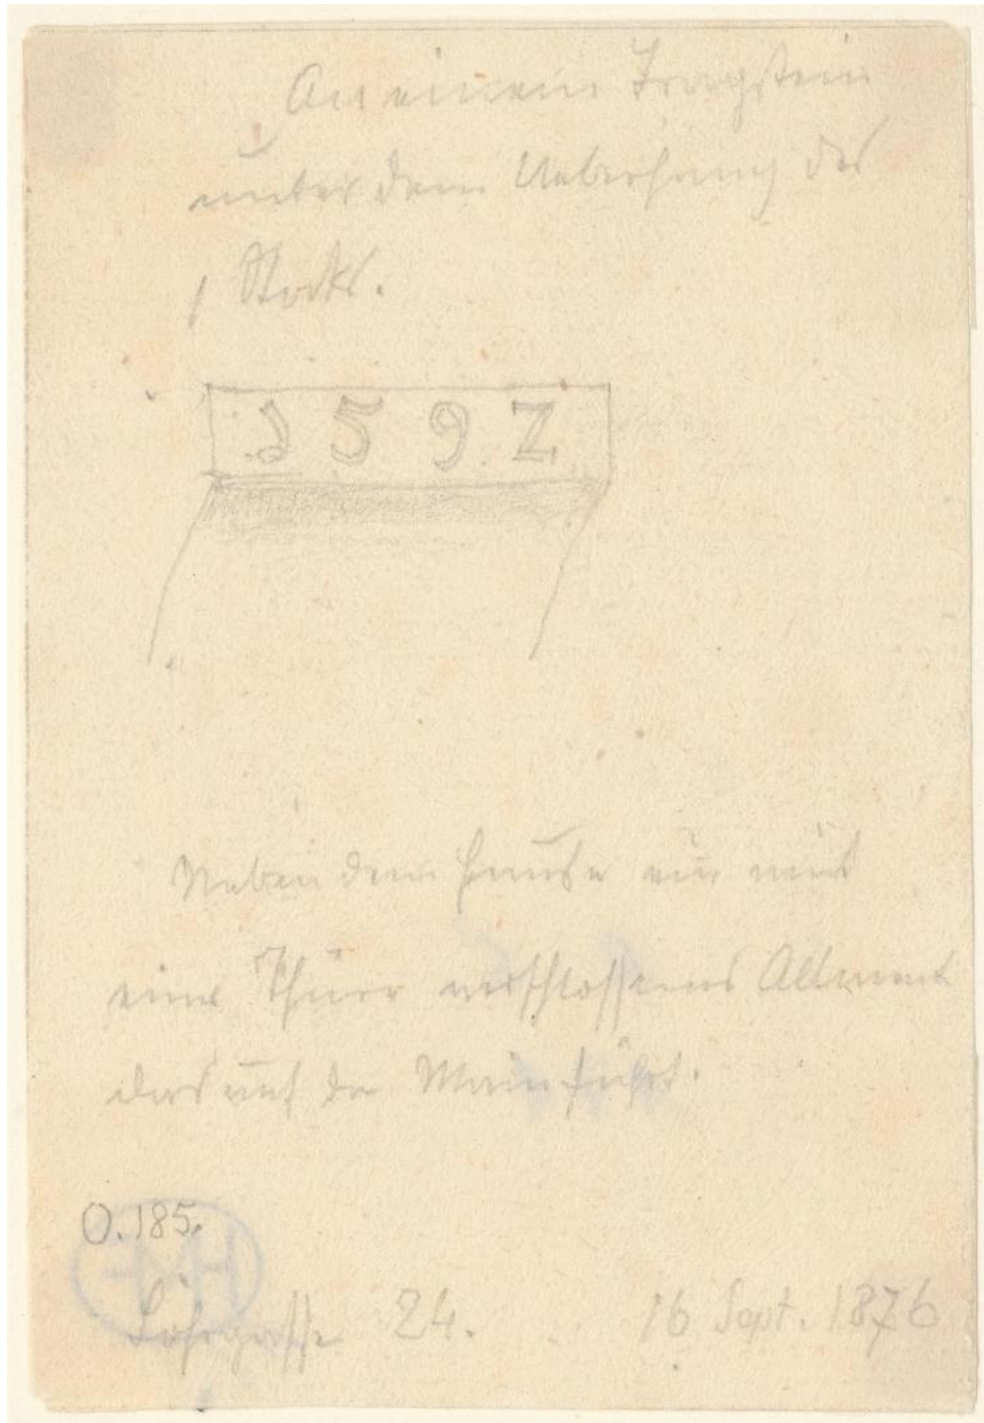 An einem Tragstein
unter dem Ueberhang des
1 Stocks.
1597
Neben dem Hause ein mit
einer Thüre verschlossenes Allment
das auf den Main führt.
O.185.
Löhrgasse 24. 16 Sept. 1876